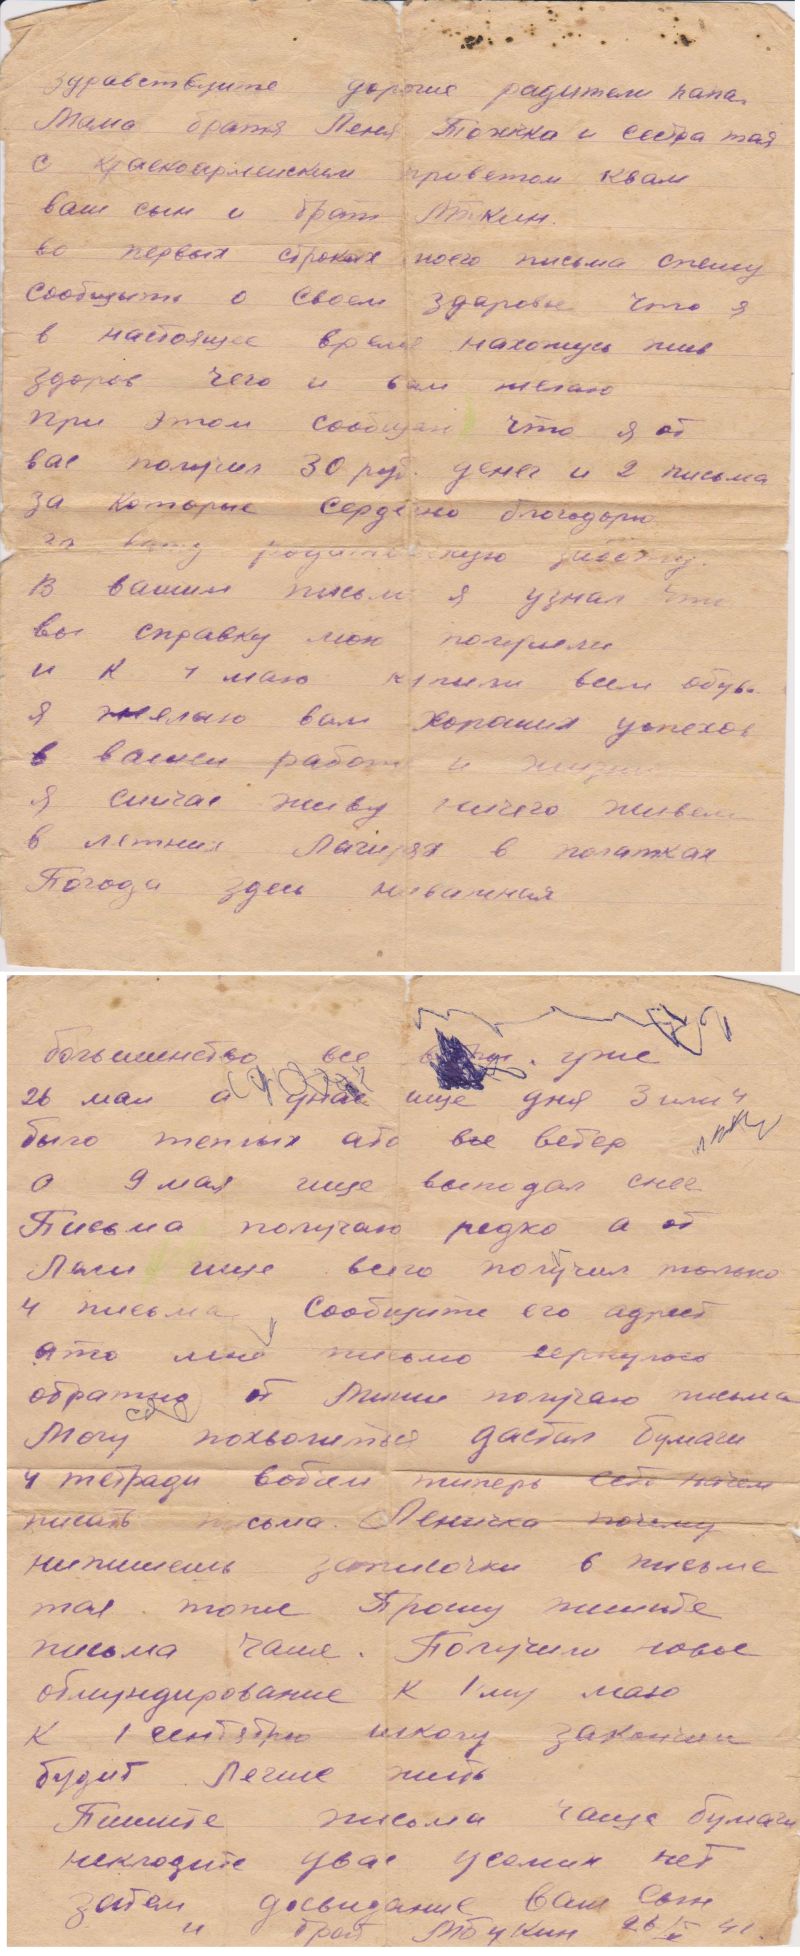 здравствуите дорогие радители папа,
Мама братя Леня Точка и сестра тая
с красноармейским приветом квам
ваш сын и брат
во первых строках моего письма спешу
сообщить о своем здоровье что я
в настоящее время нахожусь жив
здоров чего и вам желаю
при этом сообщаю что я от
вас получил 30 руб. денег и 2 письма
за которые сердечно благодарю
за вашу родительскую заботу.
В вашим письме я узнал что
вы справку мою получили
и к 1 маю купили всем обувь
я желаю вам хороших успехов
в вашей работе и жизни
я сичас живу ничего живем
в летних лагирях в полатках
Погода здесь неважная
большинство все уже
26 мая а унас ище дня 3 или 4
было теплых ато все ветер
а 9 мая ище выподал снег
Письма получаю редко а от
ище всего получил только
4 письма Сообщите его адрес
ато мне письмо вернулось
обратно от Миши получаю письма
Могу похвалиться дастал бумаги
4 тетради вобщем типерь есть начем
писать письма. Леничка почему
нипишешь записочки в письме
тая тоже Прошу пишите
письма чаще. Получили новые
обмундирование к 1му маю
К 1 сентября школу закончим
будит Легше жить
Пишите письма чаще бумаги
некладите увас усамих нет
затем досвидание Ваш сын
и брат 26/V 41.